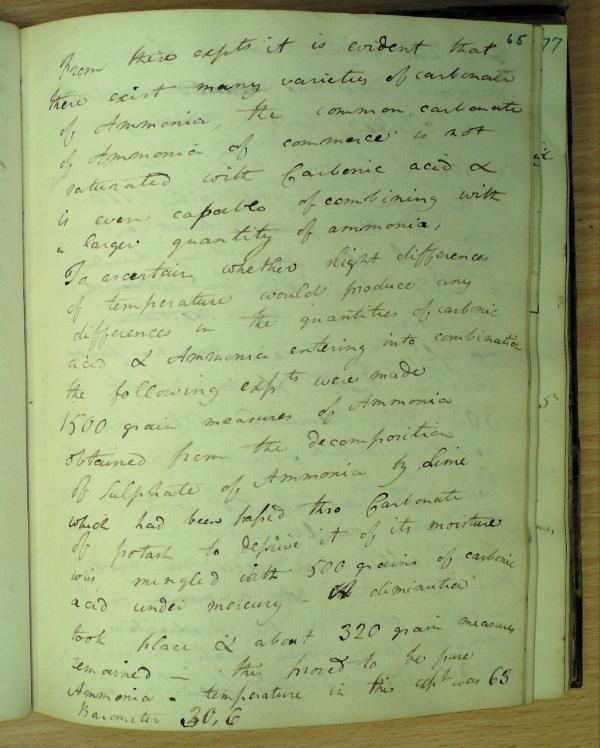 65 77
From these expts it is evident that
there exist many varieties of carbonate
of Ammonia, the common carbonate
of Ammonia of commerce is not
saturated with Carbonic acid &
is even capable of combining with
a larger quantity of ammonia,
To ascertain whether slight differences
of temperature would produce any
differences in the quantities of carbonic
acid & Ammonia entering into combination
the following expts were made
1500 grain measures of Ammonia
obtained from the decomposition
of Sulphate of Ammonia by Lime
which had been passed thro Carbonate
of potash to deprive it of its moisture
was mingled with 500 grains of carbonic
acid under mercury - diminution
took place & about 320 grain measures
remained - this proved to be pure
Ammonia - temperature in this expt was 63
Barometer 30,6